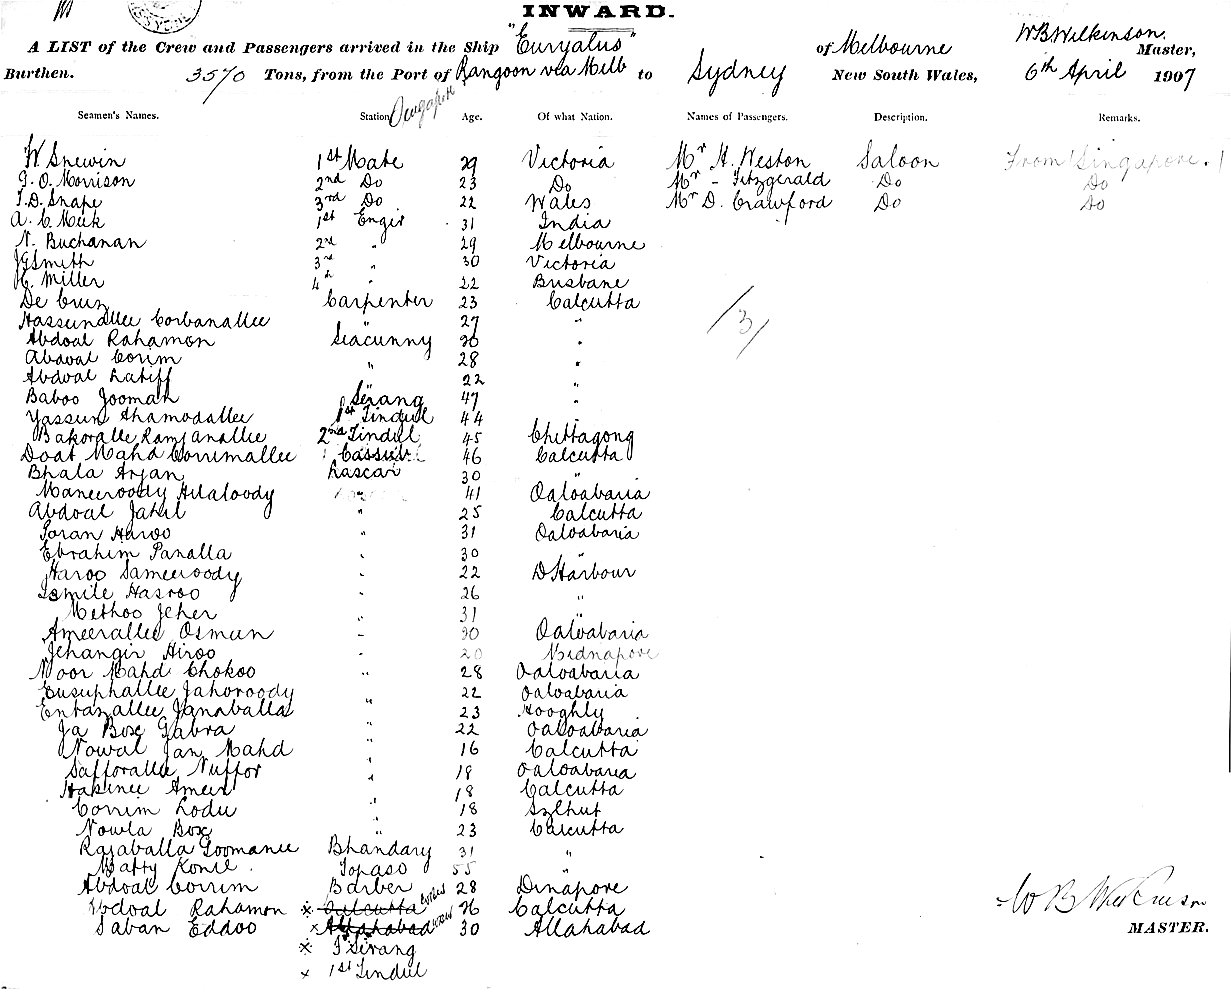 INWARD.
A LIST of the Crew and Passengers arrived in the Ship "Euryalus" of Melbourne W B Wilkinson. Master,
Burthen. 3570 Tons, from the Port of Rangoon via Melb to Sydney New South Wales, 6th April 1907
Singapore
Seamen's Names. Station Age. Of what Nation. Names of Passengers. Description. Remarks.
W Snewin 1st Mate 29 Victoria Mr H. Weston Saloon From Singapore.
G. O. Morrison 2nd Do 23 Do Mr - Fitzgerald Do Do
T. D. Snape 3rd Do 22 Wales Mr D. Crawford Do Do
A. C. Meek 1st Engir 31 India
N. Buchanan 2nd " 29 Melbourne
J G Smith 3rd " 30 Victoria
H. Miller 4th " 22 Brisbane
De Cruz Carpenter 23 Calcutta
Hassunallee Corbanallee " 27 "
Abdoal Rahamon Seacunny 30 "
Abdoal Corim 28 "
Abdoal Latiff " 22 "
Baboo Jooman Serang 47 "
Yassun Ahamodallee 1st Tindul 44
Bakoralle Ramjanallee 2nd Tindul 45 Chittagong
Doat Mahd Corrimallee Cassub 46 Calcutta
Bhala Arjan Lascar 30 "
Maneeroody Hilaloody " 41 Oaloabaria
Abdoal Jahil " 25 Calcutta
Joran Haroo " 31 Oaloabaria
Ebrahim Panalla 30 "
Haroo Sameeroody " 22 D Harbour
Ismile Hasroo " 26 "
Methoo Jeher 31 "
Ameerallee Osmun " 30 Oaloabaria
Jehangir Hiroo " 20 Midnapore
Noor Mahd Chokoo " 28 Oaloabaria
Eusuphallee Jahoroody 22 Oaloabaria
Entazallee Janaballa " 23 Hooghly
Ja Box Gabra " 22 Oaloabaria
Nowal Jan Mahd " 16 Calcutta
Safforallee Nuffor " 18 Oaloabaria
Hakinee Ameer 18 Calcutta
Corrim Lodu " 18 Sylhut
Nowla Box " 23 Calcutta
Rajaballa Goomanee Bhandary 31 "
Matty Topaso 55
Abdoal Corrim Barber 28 Dinapore
Abdoal Rahamon × Calcutta 26 Calcutta
Saban Eddoo × Allahabad 30 Allahabad
× Serang
× 1st Tindul
13
W B Wilkinson
MASTER.